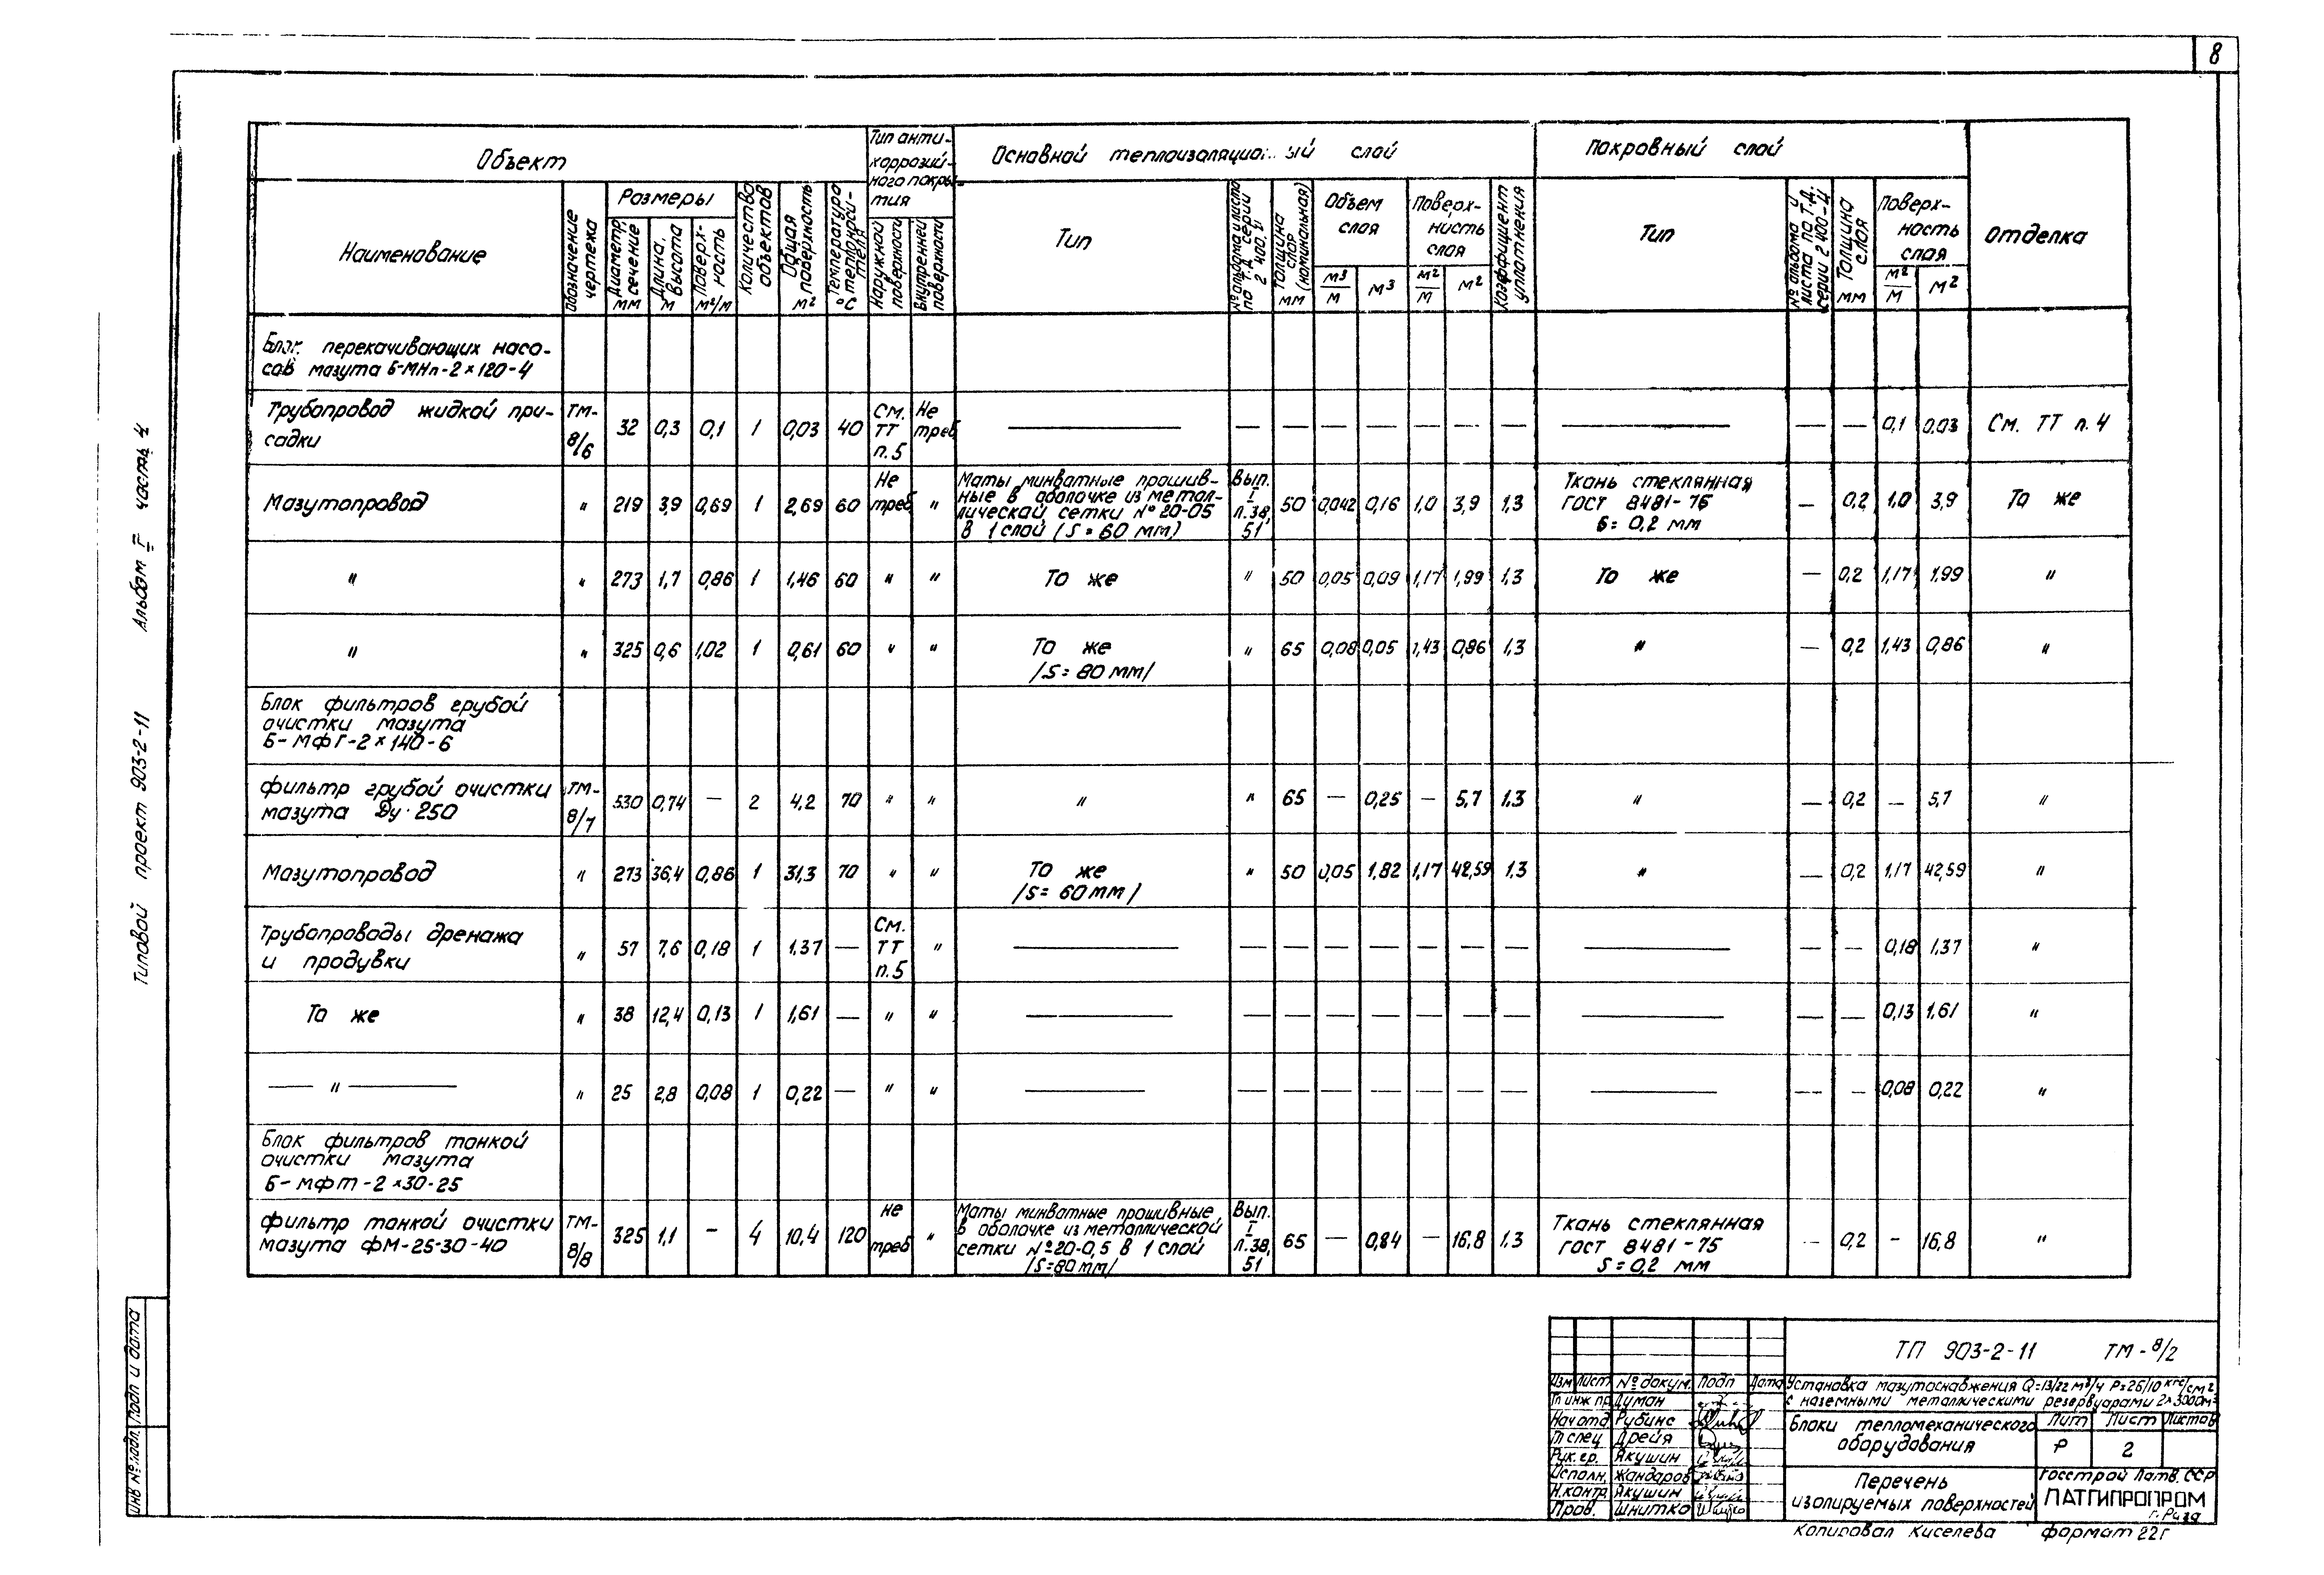 8
Объект
Тип анти-
коррозий-
ного покры-
тия
Основной теплоизоляцио ый слой
Покровный слой
Отделка
Наименование
Обозначение чертежа
Размеры
Диаметр, сечение мм
Длина, высота м
Поверх-ность м²/м
Количество объектов
Общая поверхность м²
Температура теплоноси-теля °С
Наружной поверхности
Внутренней поверхности
Тип
№ альбома и листа по Т.Д. серии 2 400.4
Толщина слоя (номинальная) мм
Объем слоя
м³/м
м³
Поверх-ность слоя
м²/м
м²
Коэффициент уплотнения
Тип
№ альбома и листа по Т.Д. серии 2 400-4
Толщина слоя мм
Поверх-ность слоя
м²/м
м²
Блок перекачивающих насо-
сов мазута Б-МНп-2×120-4
Трубопровод жидкой при-
садки ТМ-8/6 32 0,3 0,1 1 0,03 40 См. ТТ п.5 Не треб. — — — — — — — — — — — 0,1 0,03 См. ТТ п. 4
Мазутопровод " 219 3,9 0,69 1 2,69 60 Не треб " Маты минватные прошив-
ные в оболочке из метал-
лической сетки № 20-05
в 1 слой (S = 60 мм) Вып. I л.38, 51 50 0,042 0,16 1,0 3,9 1,3 Ткань стеклянная
ГОСТ 8481-75
б = 0,2 мм — 0,2 1,0 3,9 То же
" " 273 1,7 0,86 1 1,46 60 " " То же " 50 0,05 0,09 1,17 1,99 1,3 То же — 0,2 1,17 1,99 "
" " 325 0,6 1,02 1 0,61 60 " " То же
/S = 80 мм/ " 65 0,08 0,05 1,43 0,86 1,3 " — 0,2 1,43 0,86 "
Блок фильтров грубой
очистки мазута
Б-МФГ-2×140-6
Фильтр грубой очистки
мазута Ду 250 ТМ-8/7 530 0,74 — 2 4,2 70 " " " " 65 — 0,25 — 5,7 1,3 " — 0,2 — 5,7 "
Мазутопровод " 273 36,4 0,86 1 31,3 70 " " То же
/S = 60 мм/ " 50 0,05 1,82 1,17 42,59 1,3 " — 0,2 1,17 42,59 "
Трубопроводы дренажа
и продувки " 57 7,6 0,18 1 1,37 — См. ТТ п.5 " — — — — — — — — — — — 0,18 1,37 "
То же " 38 12,4 0,13 1 1,61 — " " — — — — — — — — — — — 0,13 1,61 "
— " — " 25 2,8 0,08 1 0,22 — " " — — — — — — — — — — — 0,08 0,22 "
Блок фильтров тонкой
очистки мазута
Б-МФТ-2×30-25
Фильтр тонкой очистки
мазута ФМ-25-30-40 ТМ-8/8 325 1,1 — 4 10,4 120 не треб " Маты минватные прошивные
в оболочке из металлической
сетки № 20-0,5 в 1 слой
/S=80 мм/ Вып. I л.38, 51 65 — 0,84 — 16,8 1,3 Ткань стеклянная
ГОСТ 8481-75
S = 0,2 мм — 0,2 — 16,8 "
Типовой проект 903-2-11 Альбом I часть 4
Инв № подл. Подп и дата
ТП 903-2-11 ТМ-8/2
Изм Лист № докум. Подп Дата
Гл инж пр Думан
Нач отд Рубинс
Гл спец Дрейя
Рук. гр. Якушин
Исполн. Жандаров
Н.контр. Якушин
Пров. Шнитко
Установка мазутоснабжения Q=13/22 м³/ч Р=26/10 кгс/см²
с наземными металлическими резервуарами 2×3000м³
Блоки тепломеханического
оборудования
Лит Лист Листов
Р 2
Перечень
изолируемых поверхностей
Госстрой Латв. ССР
ЛАТГИПРОПРОМ
г. Рига
Копировал Киселева формат 22г